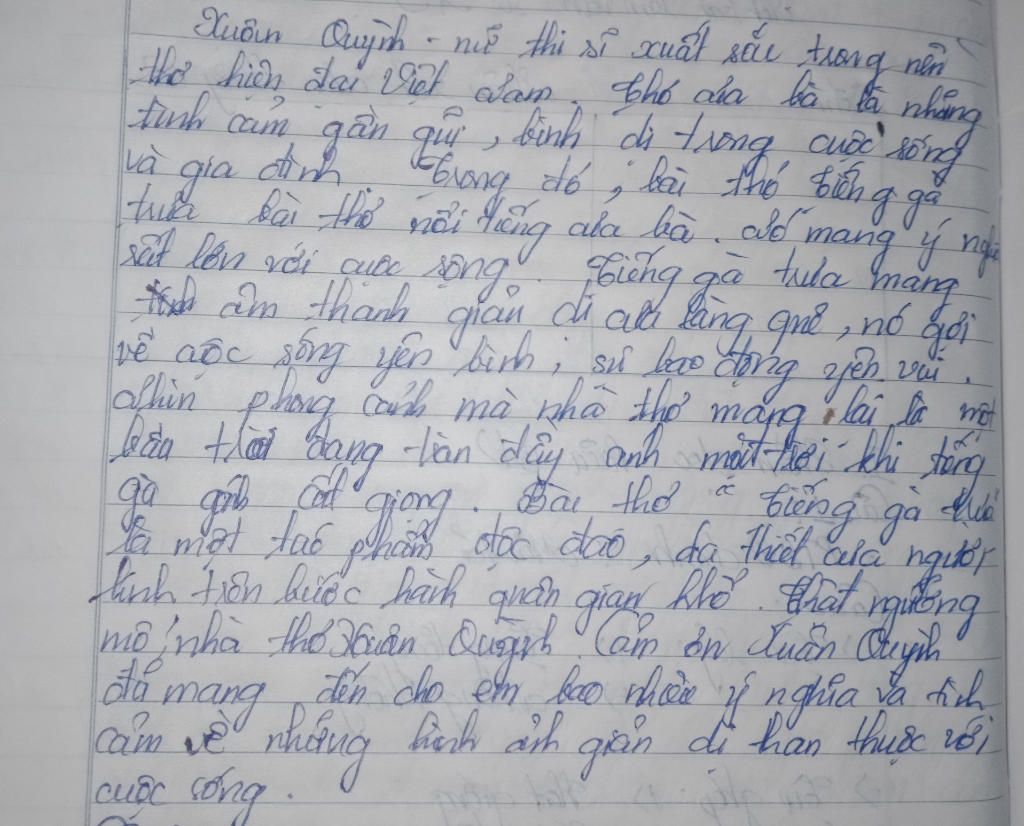 Xuân Quỳnh - nữ thi sĩ xuất sắc trong nền
thơ hiện đại Việt Nam. Thơ của bà là những
tình cảm gần gũi, bình dị trong cuộc sống
và gia đình Trong đó, bài thơ Tiếng gà
trưa bài thơ nổi tiếng của bà. Nó mang ý nghĩa
rất lớn với cuộc sống. Tiếng gà trưa mang
âm thanh giản dị của làng quê, nó gợi
về cuộc sống yên bình, sự lao động yên vui.
Nhìn phong cảnh mà nhà thơ mang lại là một
bầu trời đang tràn đầy ánh mặt trời khi tiếng
gà cất giọng. Bài thơ " Tiếng gà trưa
là một tác phẩm độc đáo, da thiết của người
lính trên bước hành quân gian khổ. Thật ngưỡng
mộ nhà thơ Xuân Quỳnh. Cảm ơn Xuân Quỳnh
đã mang đến cho em bao nhiêu ý nghĩa và tình
cảm về những hình ảnh giản dị thân thuộc với
cuộc sống.